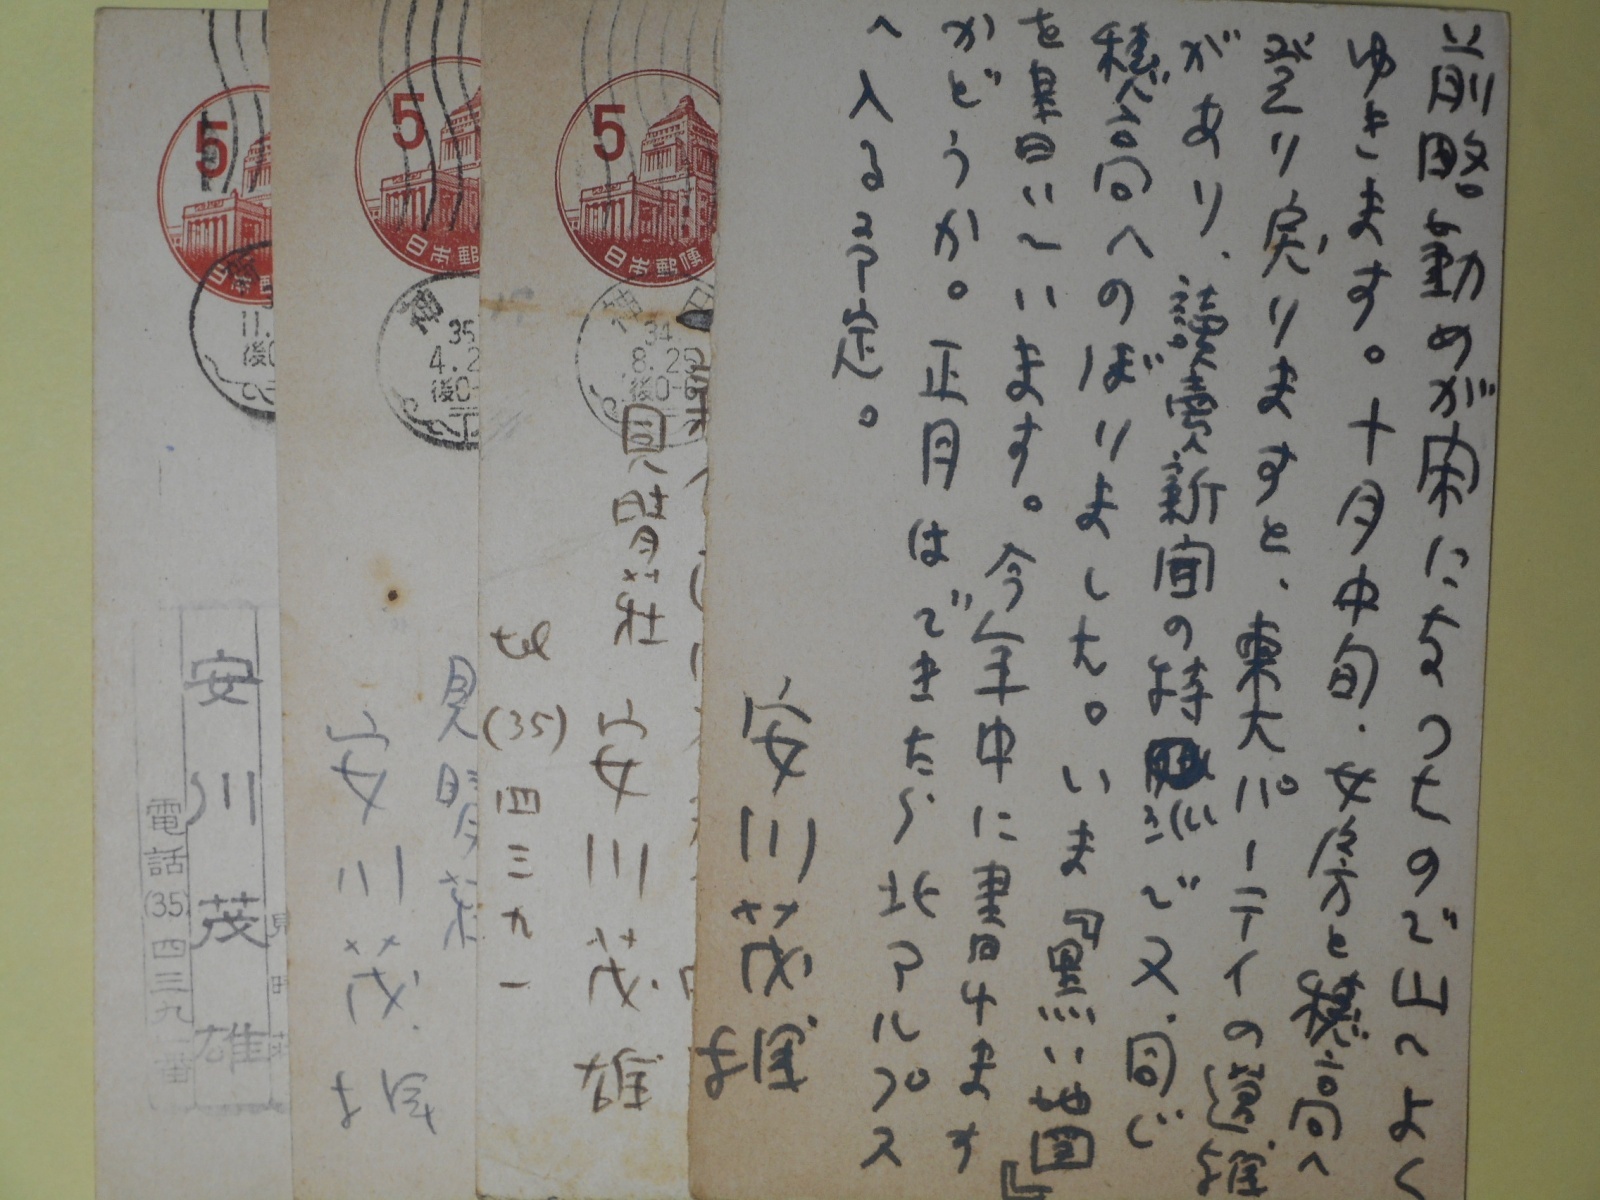 前略 勤めが閑になつたので山へよく
ゆきます。十月中旬、女房と穂高へ
登り戻りますと、東大パーティの遭難
があり、讀賣新聞の特派で又、同じ
穂高へのぼりました。いま『黒い地図』
を書いています。今年中に書けます
かどうか。正月はできたら北アルプス
へ入る予定。
安川茂雄
5
日本郵便
34
8.25
後0-6
見晴荘
安川茂雄
tel
(35)四三九一
5
日本郵
神
35
4.2
後0-
見晴荘
安川茂雄
5
日本郵
11.
後0
安川茂雄
電話(35)四三九一番